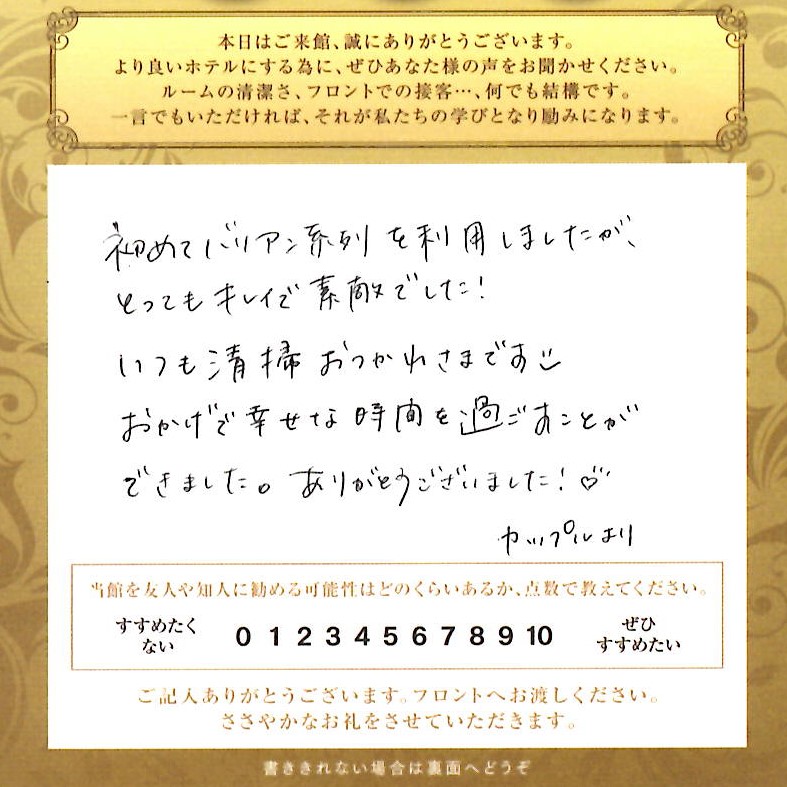 本日はご来館、誠にありがとうございます。
より良いホテルにする為に、ぜひあなた様の声をお聞かせください。
ルームの清潔さ、フロントでの接客…、何でも結構です。
一言でもいただければ、それが私たちの学びとなり励みになります。
初めてバリアン系列を利用しましたが、
とってもキレイで素敵でした!
いつも清掃おつかれさまです
おかげで幸せな時間を過ごすことが
できました。ありがとうございました!♡
カップルより
当館を友人や知人に勧める可能性はどのくらいあるか、点数で教えてください。
すすめたく
ない
0 1 2 3 4 5 6 7 8 9 10
ぜひ
すすめたい
ご記入ありがとうございます。フロントへお渡しください。
ささやかなお礼をさせていただきます。
書ききれない場合は裏面へどうぞ